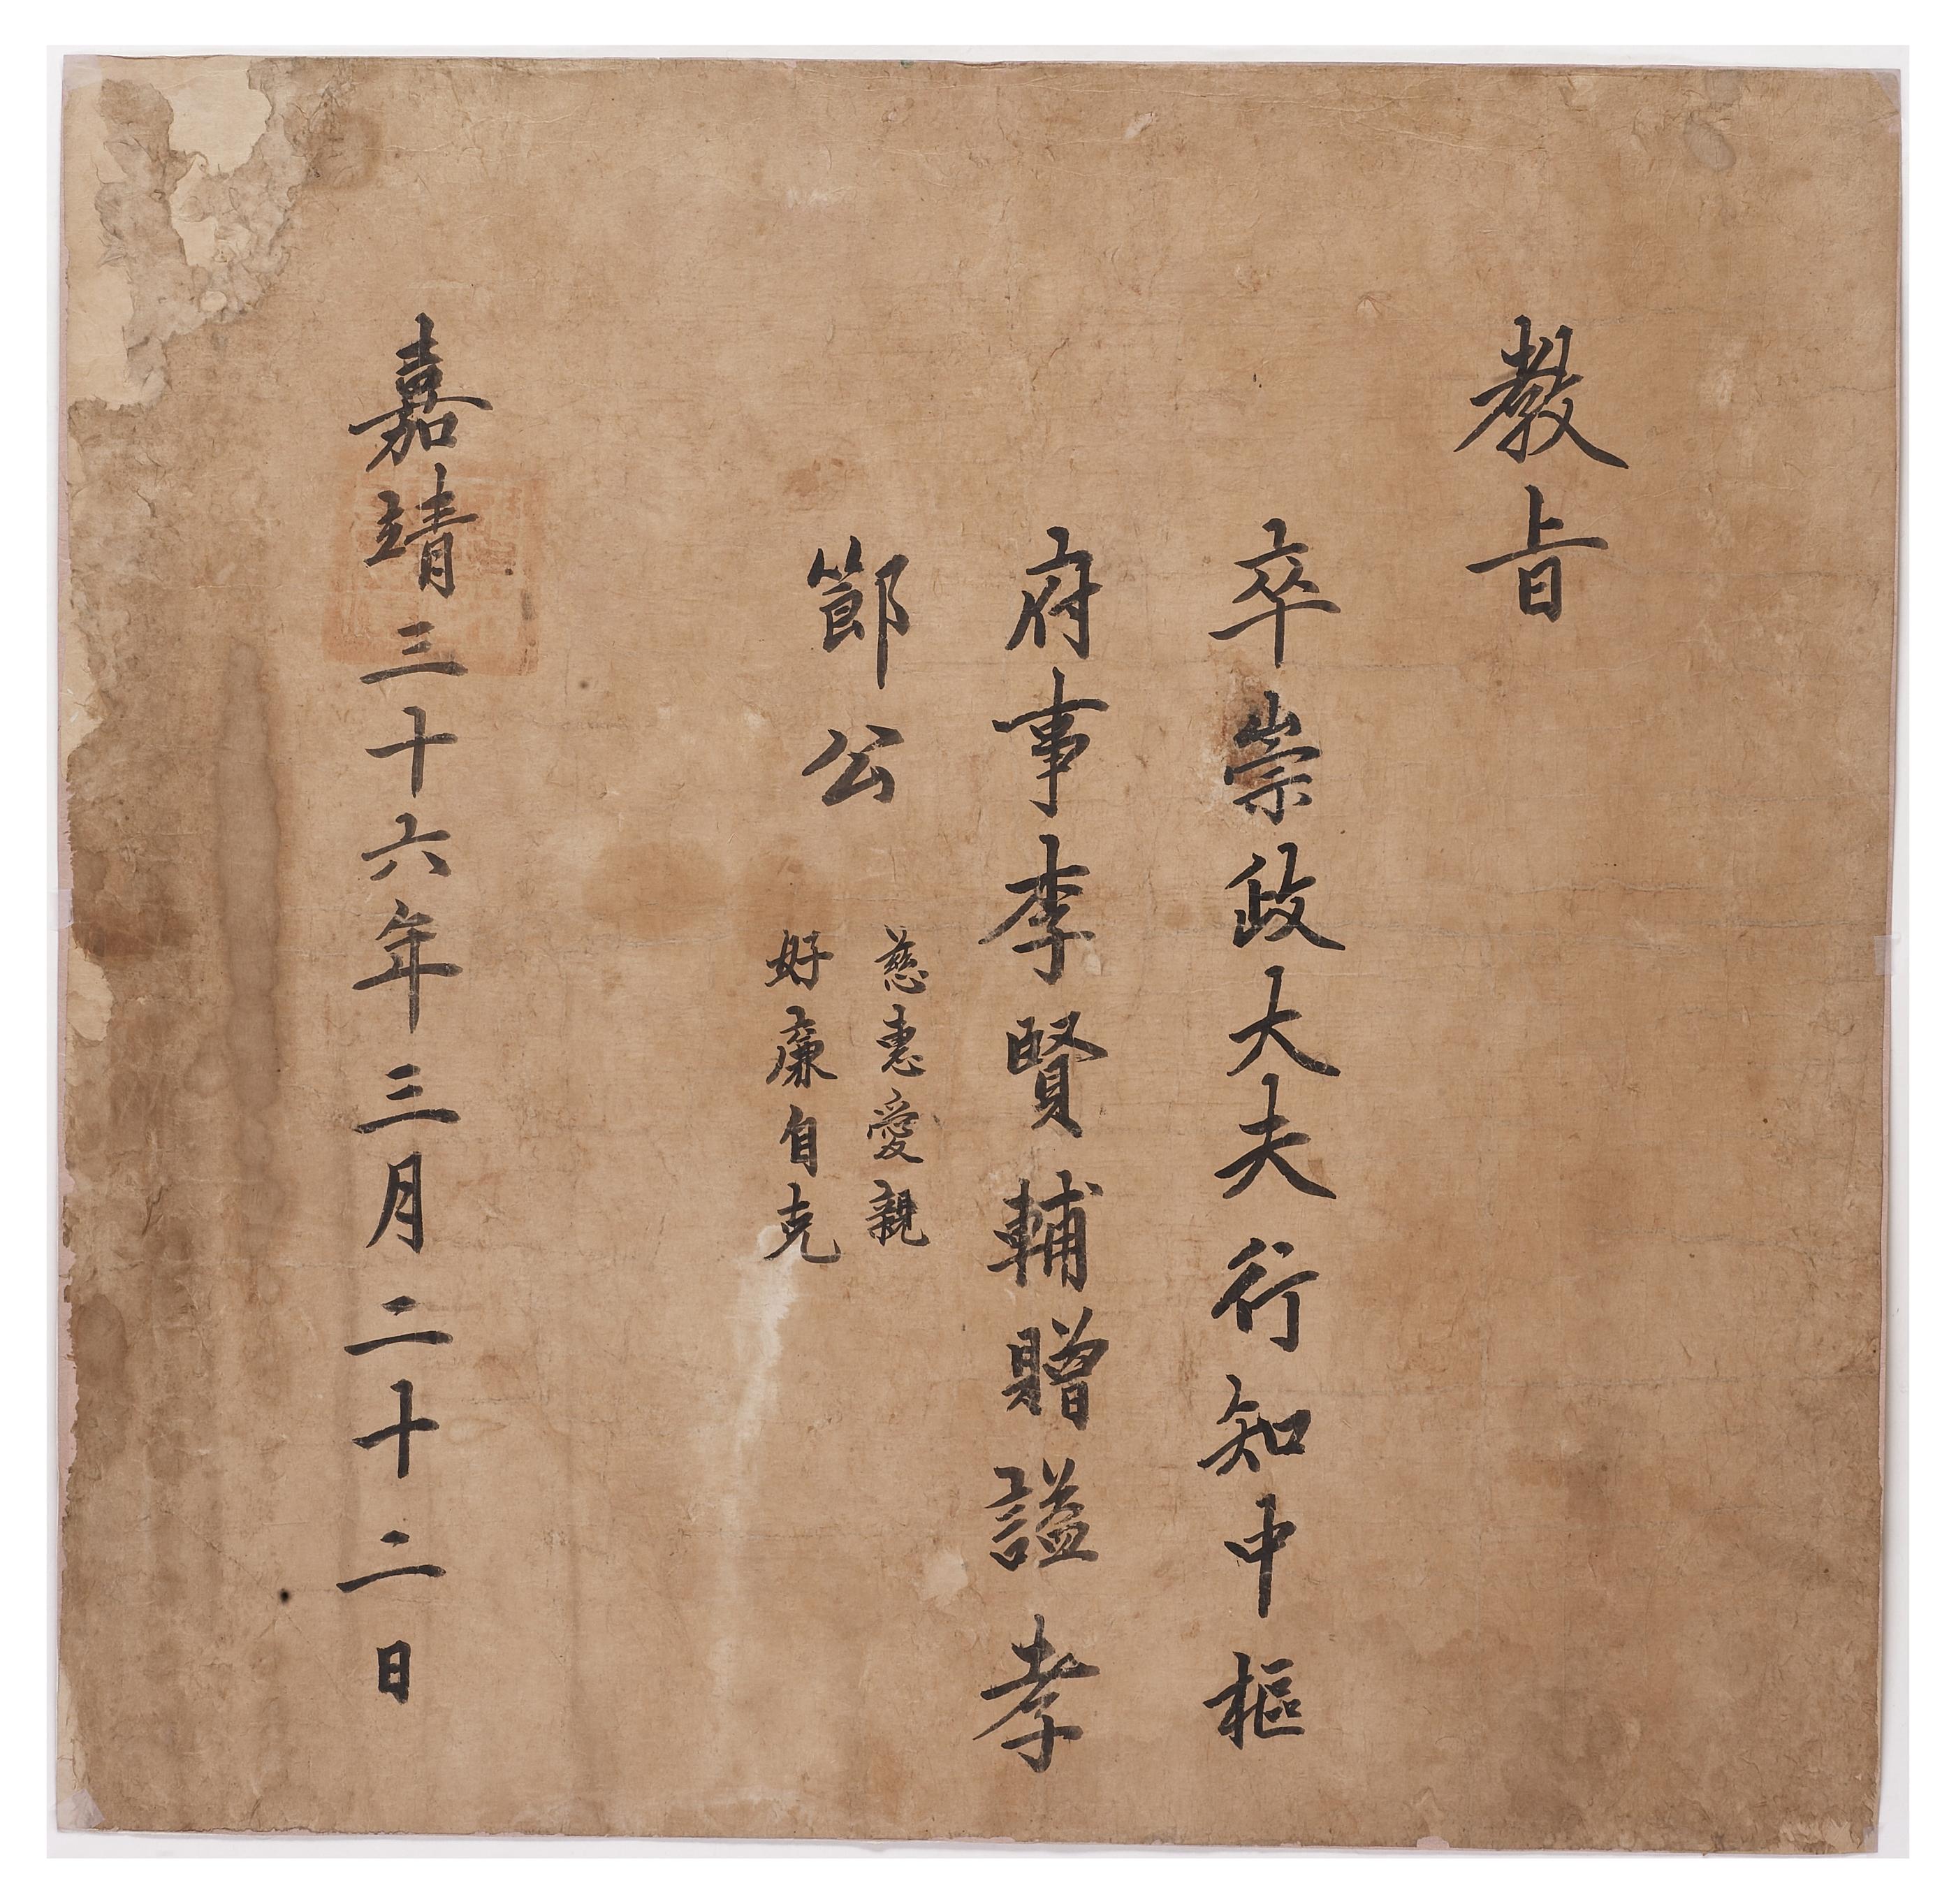 教旨
卒崇政大夫行知中樞
府事李賢輔贈諡孝
節公
慈惠愛親
好廉自克
嘉靖三十六年三月二十二日